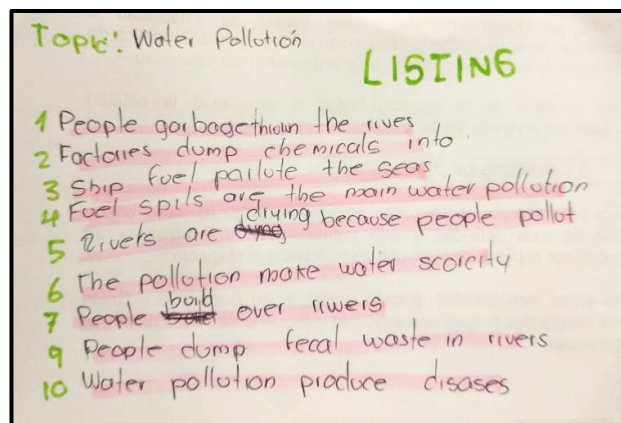 Topic: Water Pollution
LISTING
1 People garbage thrown the rives
2 Factories dump chemicals into
3 Ship fuel pailute the seas
4 Fuel spils are the main water pollution
5 Rivers are drying because people pollut
6 The pollution make water scorcity
7 People build over rivers
9 People dump fecal waste in rivers
10 Water pollution produce disases